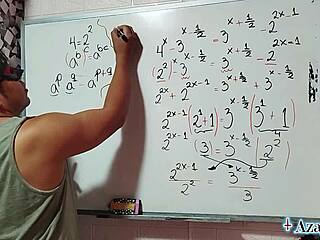 4=2²
(a^b)^c=a^bc
a^p a^q = a^p+q
4^x - 3^x-1/2 = 3^x+1/2 - 2^2x-1
(2²)^x - 3^x-1/2 = 3^x+1/2 - 2^2x-1
2^2x + 2^2x-1 = 3^x+1/2 + 3^x-1/2
2^2x-1 (2^1+1) = 3^x-1/2 (3^1+1)
2^2x-1 (3) = 3^x-1/2 (2²)
4
2^2x-1 / 2² = 3^x-1/2 / 3
+ Aza